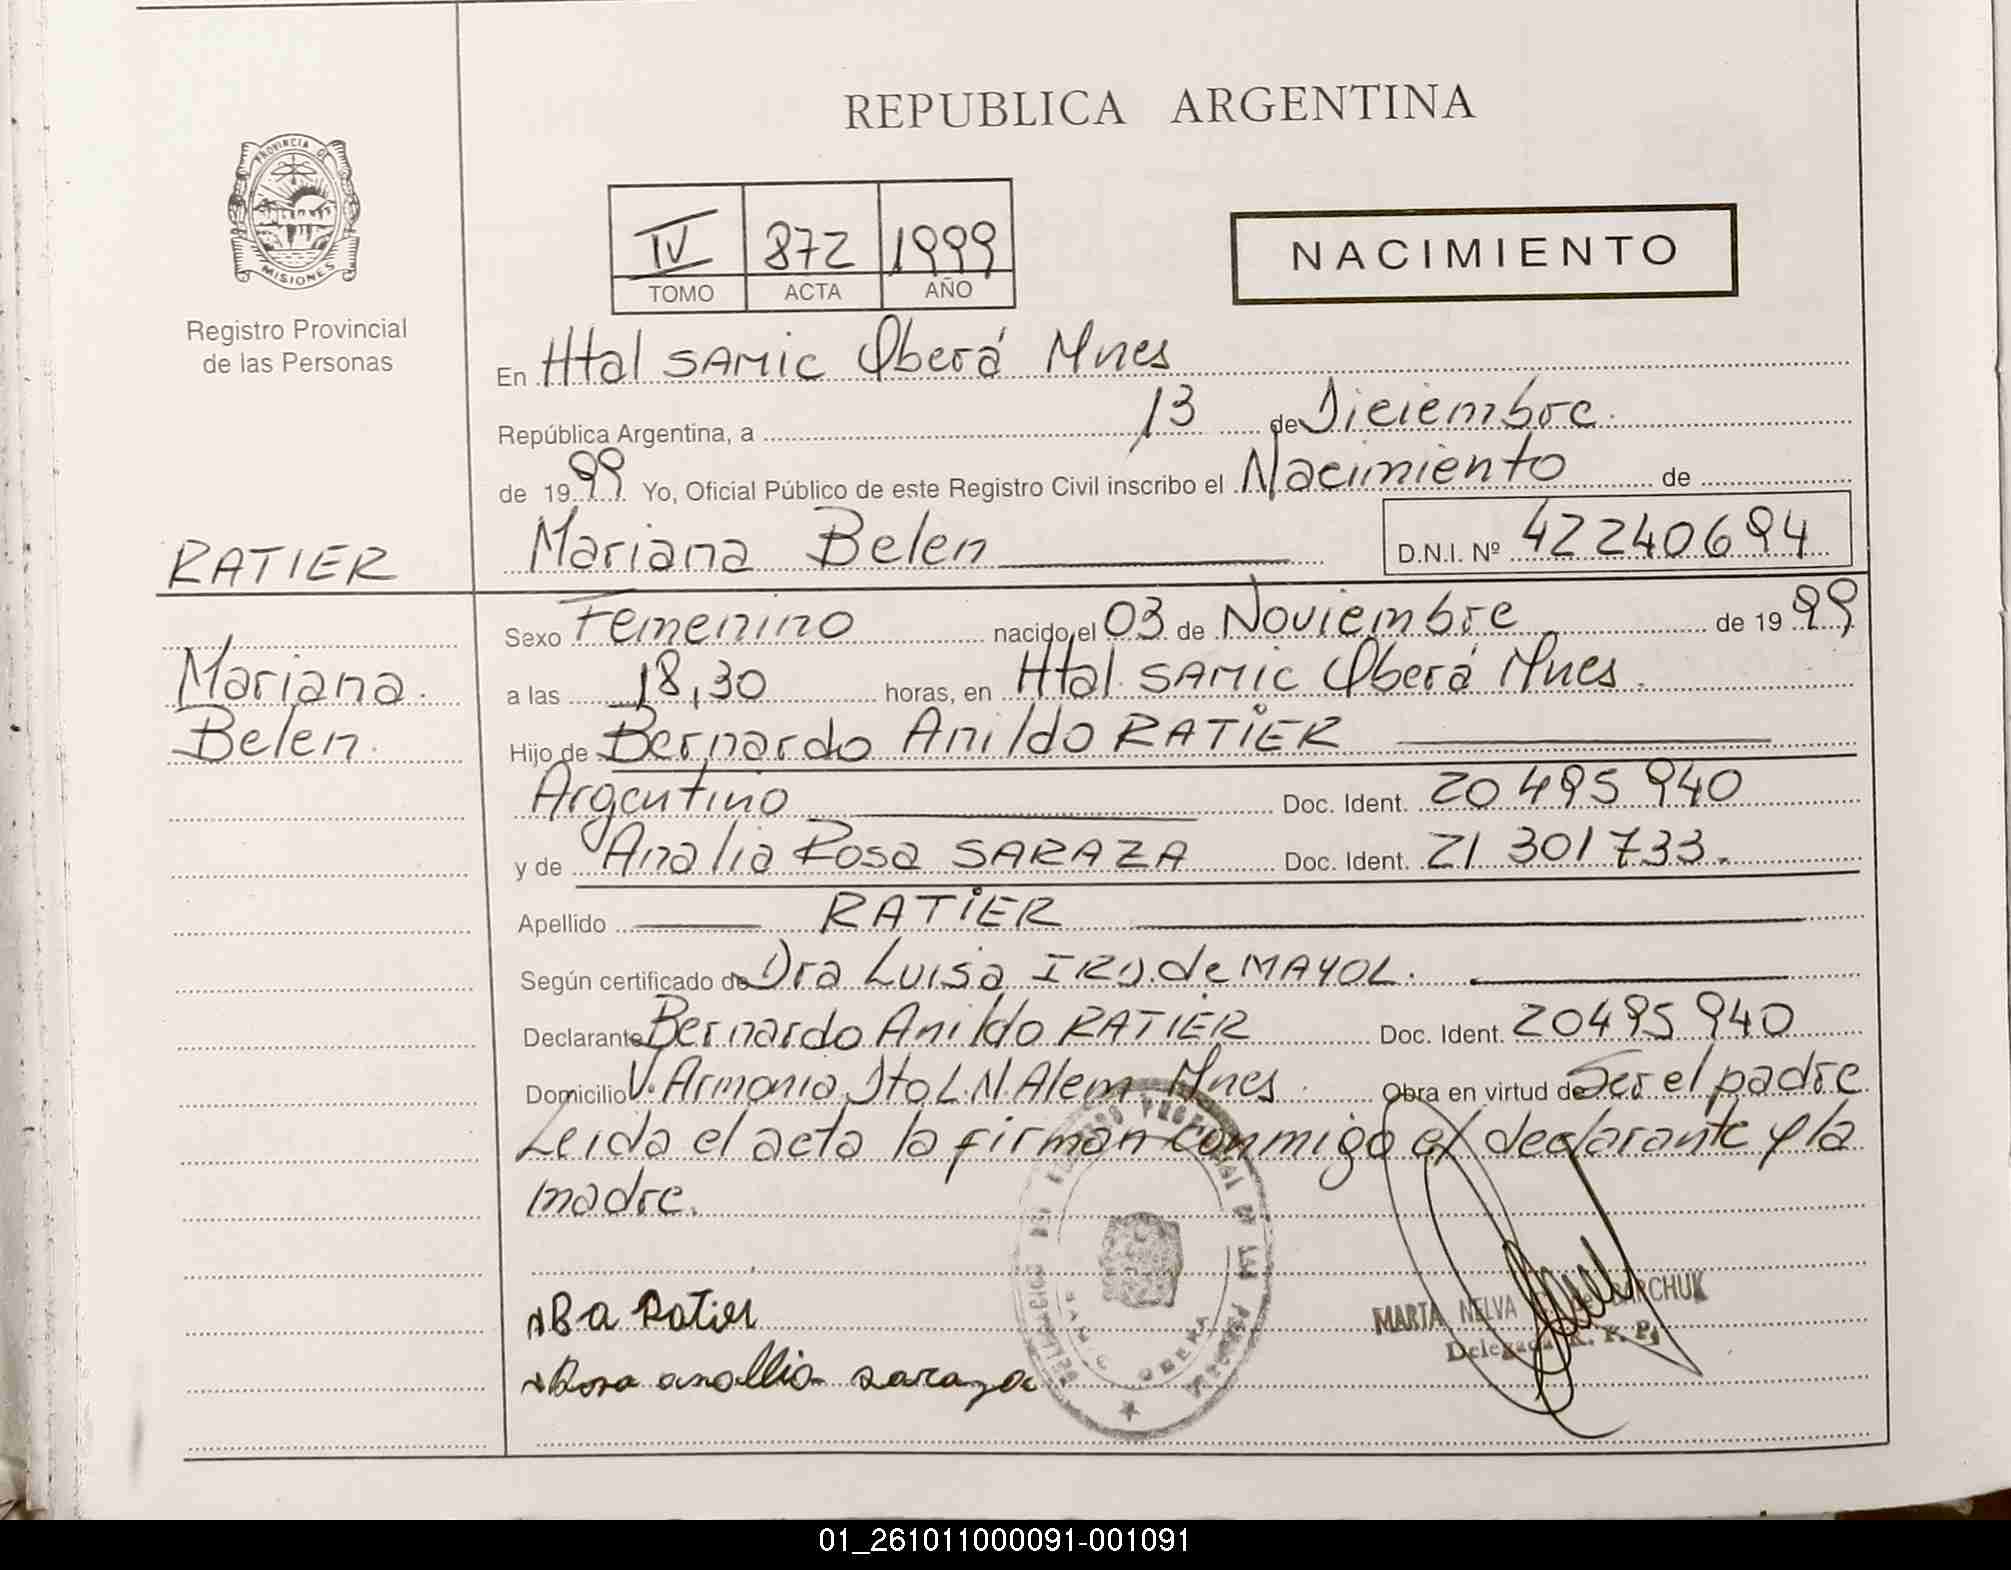 REPUBLICA ARGENTINA
PROVINCIA DE
MISIONES
Registro Provincial
de las Personas
IV 872 1999
TOMO ACTA AÑO
NACIMIENTO
En Htal SAMIC Oberá Mnes
República Argentina, a 13 de Diciembre.
de 1999 Yo, Oficial Público de este Registro Civil inscribo el Nacimiento de
Mariana Belen D.N.I. Nº 42240694
RATIER
Mariana.
Belen.
Sexo Femenino nacido el 03 de Noviembre de 1999
a las 18,30 horas, en Htal. SAMIC Oberá Mnes.
Hijo de Bernardo Anildo RATIER
Argentino Doc. Ident. 20 495 940
y de Analia Rosa SARAZA Doc. Ident. 21 301 733.
Apellido RATIER
Según certificado de Dra Luisa IRO. de MAYOL.
Declarante Bernardo Anildo RATIER Doc. Ident. 20495 940
Domicilio V. Armonia Dto L.N. Alem Mnes. Obra en virtud de Ser el padre
Leida el acta la firman conmigo el declarante y la
madre.
B a Ratier
Rosa anallia saraza
REGISTRO PROVINCIAL DE LAS PERSONAS
SAMIC OBERA
MARTA NELVA de BARCHUK
Delegada R. P. P.
01_261011000091-001091